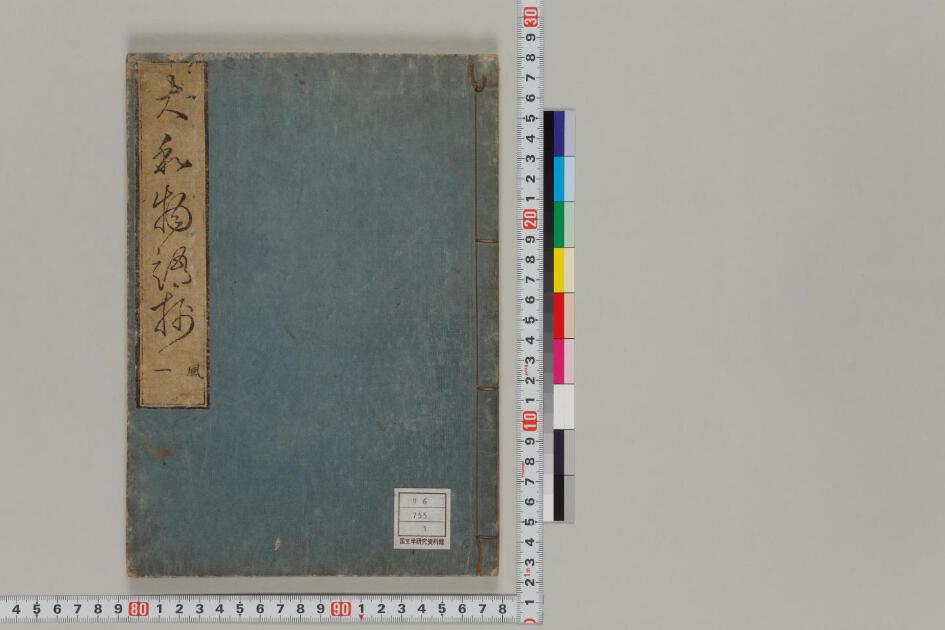 大和物語抄
一
風
サ6
755
1
国文学研究資料館
30
9
8
7
6
5
4
3
2
1
20
9
8
7
6
5
4
3
2
1
10
9
8
7
6
5
4
3
2
1
4 5 6 7 8 9 80 1 2 3 4 5 6 7 8 9 90 1 2 3 4 5 6 7 8